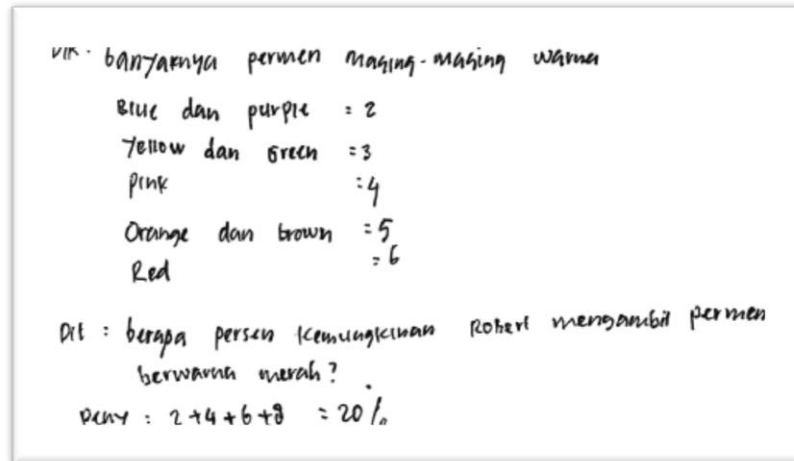 Dik . banyaknya permen masing-masing warna
Blue dan purple = 2
Yellow dan Green = 3
Pink = 4
Orange dan brown = 5
Red = 6
Dit : berapa persen kemungkinan Robert mengambil permen
berwarna merah?
Peny : 2+4+6+8 = 20%